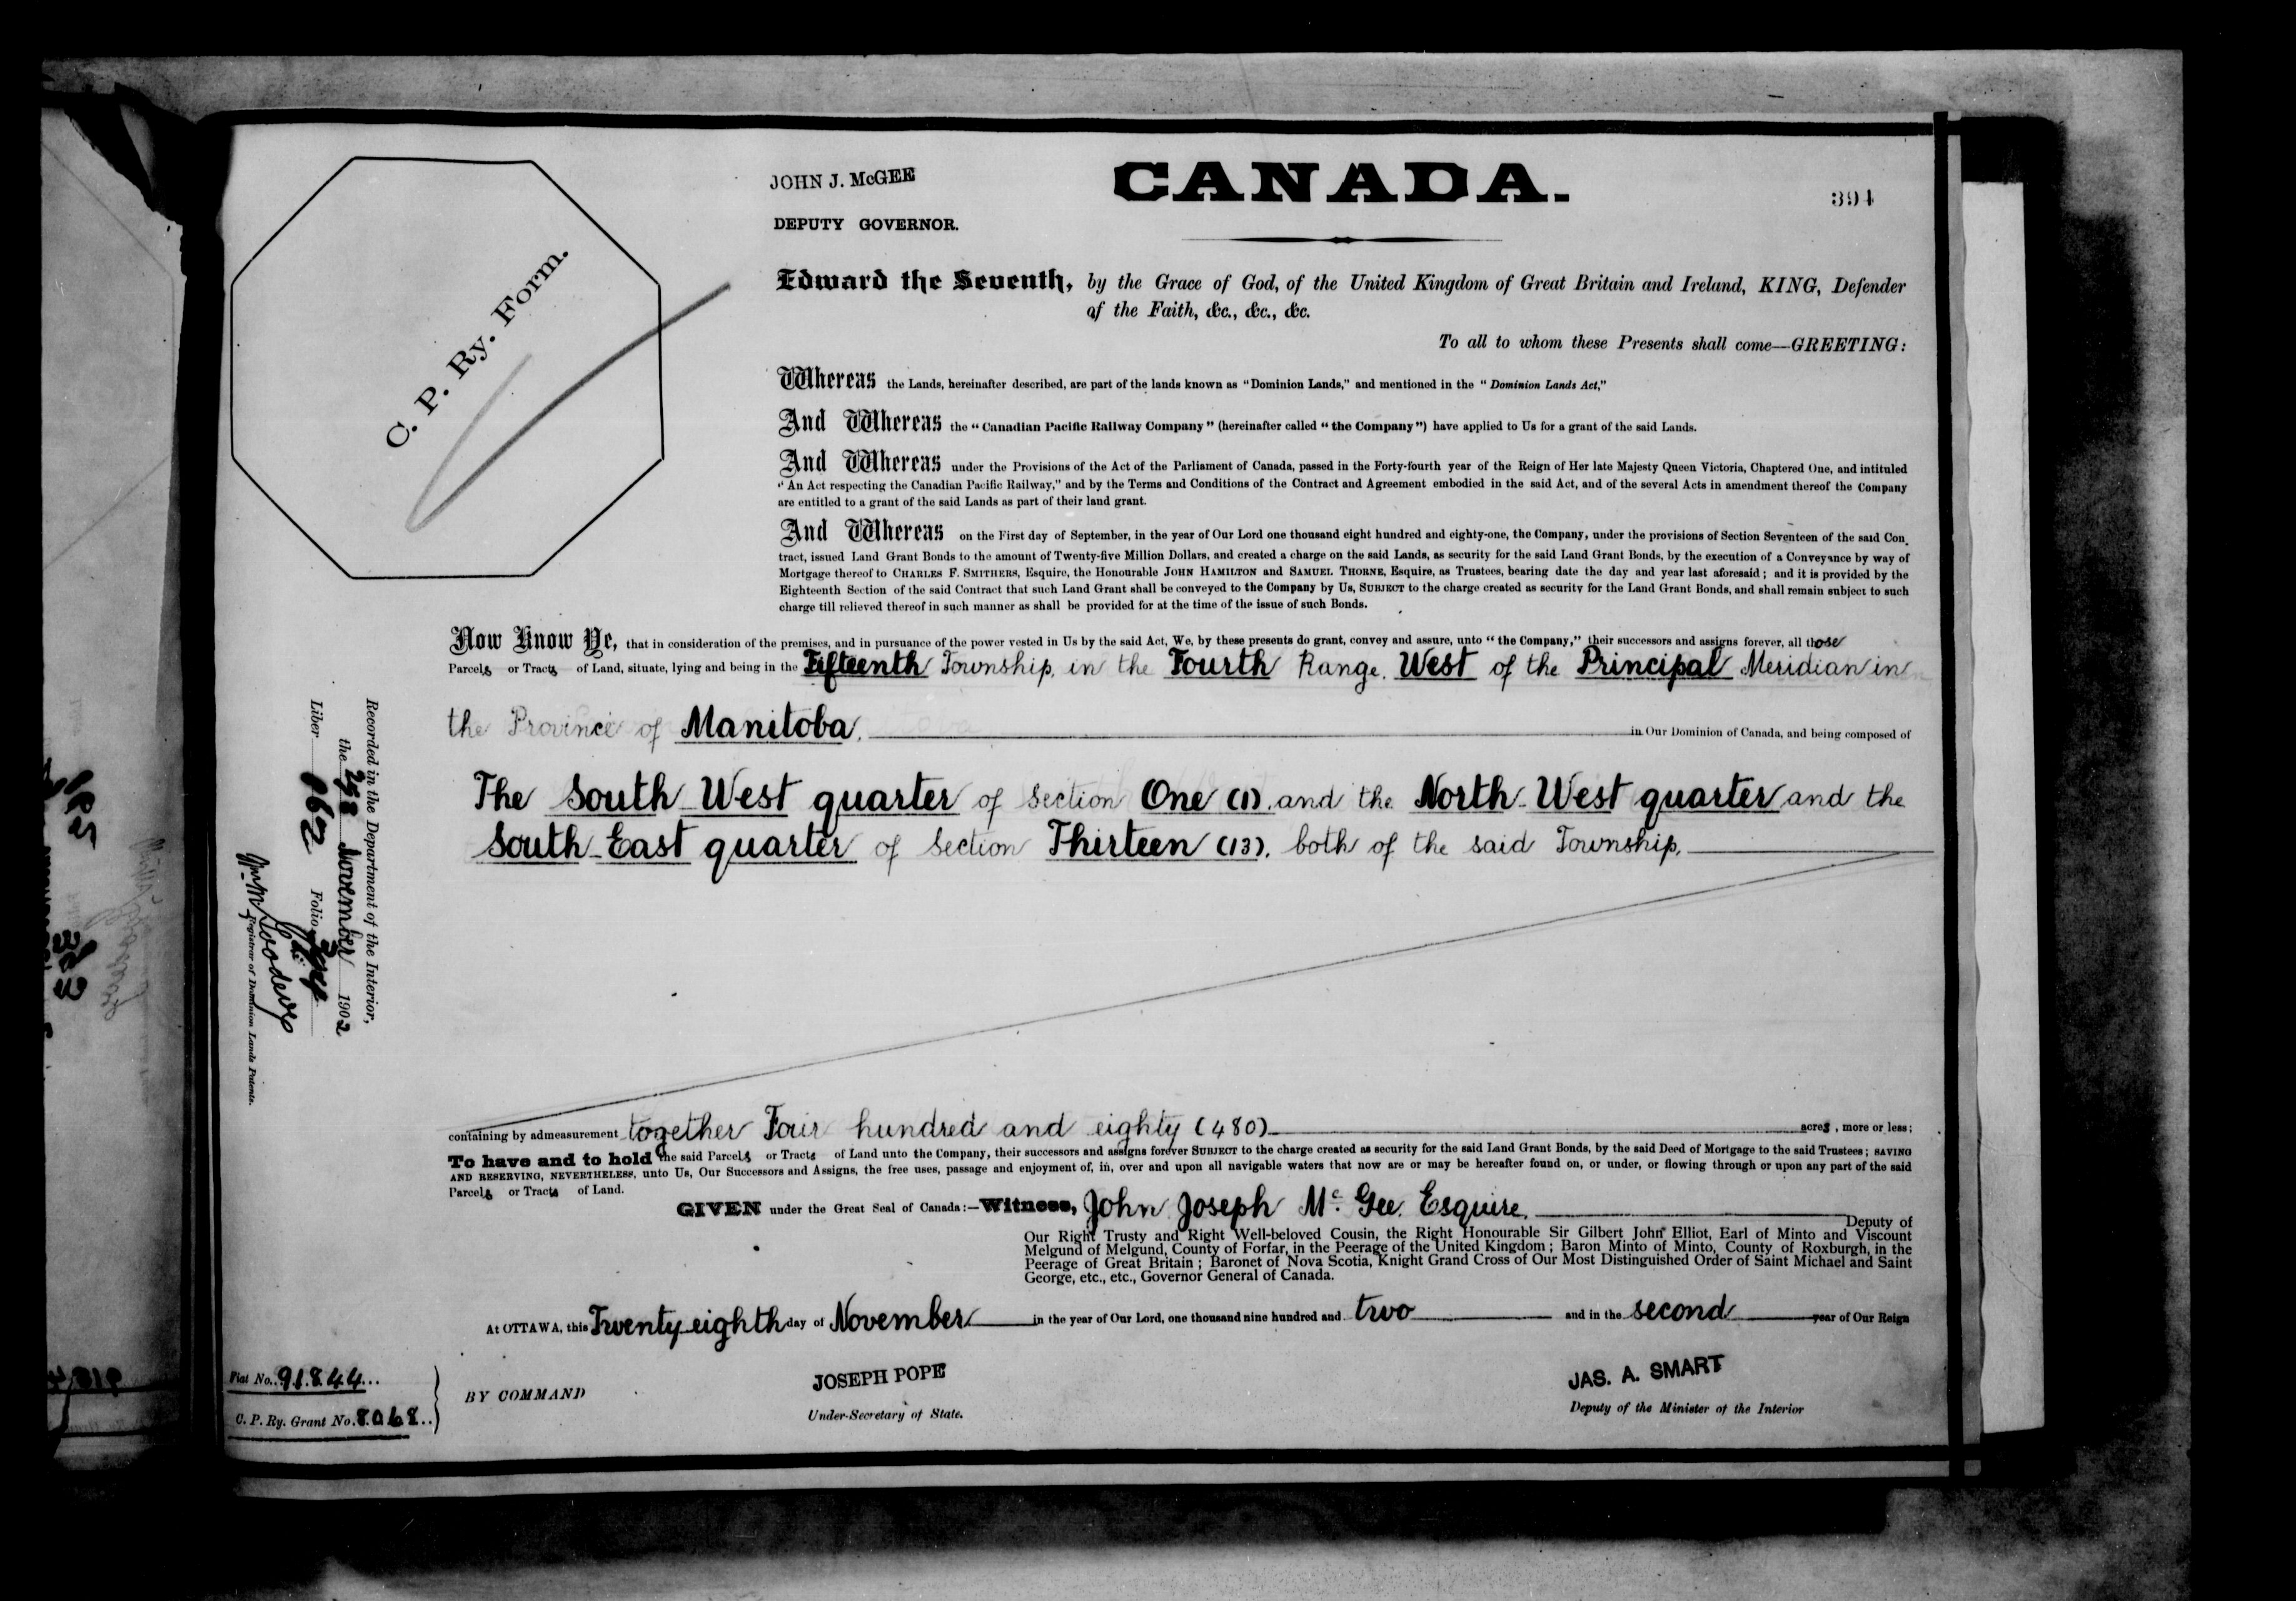 JOHN J. McGEE
DEPUTY GOVERNOR.
CANADA.
394
C. P. Ry. Form.
Edward the Seventh, by the Grace of God, of the United Kingdom of Great Britain and Ireland, KING, Defender
of the Faith, &c., &c., &c.
To all to whom these Presents shall come—GREETING:
Whereas the Lands, hereinafter described, are part of the lands known as "Dominion Lands," and mentioned in the "Dominion Lands Act,"
And Whereas the "Canadian Pacific Railway Company" (hereinafter called "the Company") have applied to Us for a grant of the said Lands.
And Whereas under the Provisions of the Act of the Parliament of Canada, passed in the Forty-fourth year of the Reign of Her late Majesty Queen Victoria, Chaptered One, and intituled
"An Act respecting the Canadian Pacific Railway," and by the Terms and Conditions of the Contract and Agreement embodied in the said Act, and of the several Acts in amendment thereof the Company
are entitled to a grant of the said Lands as part of their land grant.
And Whereas on the First day of September, in the year of Our Lord one thousand eight hundred and eighty-one, the Company, under the provisions of Section Seventeen of the said Con-
tract, issued Land Grant Bonds to the amount of Twenty-five Million Dollars, and created a charge on the said Lands, as security for the said Land Grant Bonds, by the execution of a Conveyance by way of
Mortgage thereof to CHARLES F. SMITHERS, Esquire, the Honourable JOHN HAMILTON and SAMUEL THORNE, Esquire, as Trustees, bearing date the day and year last aforesaid; and it is provided by the
Eighteenth Section of the said Contract that such Land Grant shall be conveyed to the Company by Us, SUBJECT to the charge created as security for the Land Grant Bonds, and shall remain subject to such
charge till relieved thereof in such manner as shall be provided for at the time of the issue of such Bonds.
Now Know Ye, that in consideration of the premises, and in pursuance of the power vested in Us by the said Act, We, by these presents do grant, convey and assure, unto "the Company," their successors and assigns forever, all those
Parcels or Tracts of Land, situate, lying and being in the Fifteenth Township, in the Fourth Range, West of the Principal Meridian in
the Province of Manitoba, in Our Dominion of Canada, and being composed of
The South-West quarter of Section One (1), and the North-West quarter and the
South-East quarter of Section Thirteen (13), both of the said Township,
containing by admeasurement together Four hundred and eighty (480) acres, more or less;
To have and to hold the said Parcels or Tracts of Land unto the Company, their successors and assigns forever SUBJECT to the charge created as security for the said Land Grant Bonds, by the said Deed of Mortgage to the said Trustees; SAVING
AND RESERVING, NEVERTHELESS, unto Us, Our Successors and Assigns, the free uses, passage and enjoyment of, in, over and upon all navigable waters that now are or may be hereafter found on, or under, or flowing through or upon any part of the said
Parcels or Tracts of Land.
GIVEN under the Great Seal of Canada:—Witness, John Joseph Mc. Gee, Esquire, Deputy of
Our Right Trusty and Right Well-beloved Cousin, the Right Honourable Sir Gilbert John Elliot, Earl of Minto and Viscount
Melgund of Melgund, County of Forfar, in the Peerage of the United Kingdom; Baron Minto of Minto, County of Roxburgh, in the
Peerage of Great Britain; Baronet of Nova Scotia, Knight Grand Cross of Our Most Distinguished Order of Saint Michael and Saint
George, etc., etc., Governor General of Canada.
At OTTAWA, this Twenty eighth day of November in the year of Our Lord, one thousand nine hundred and two and in the second year of Our Reign
BY COMMAND
JOSEPH POPE
Under-Secretary of State.
JAS. A. SMART
Deputy of the Minister of the Interior
Fiat No. 91844
C. P. Ry. Grant No. 8068
Recorded in the Department of the Interior,
the 28 November 1902
Liber 162 Folio
Registrar of Dominion Lands Patents.